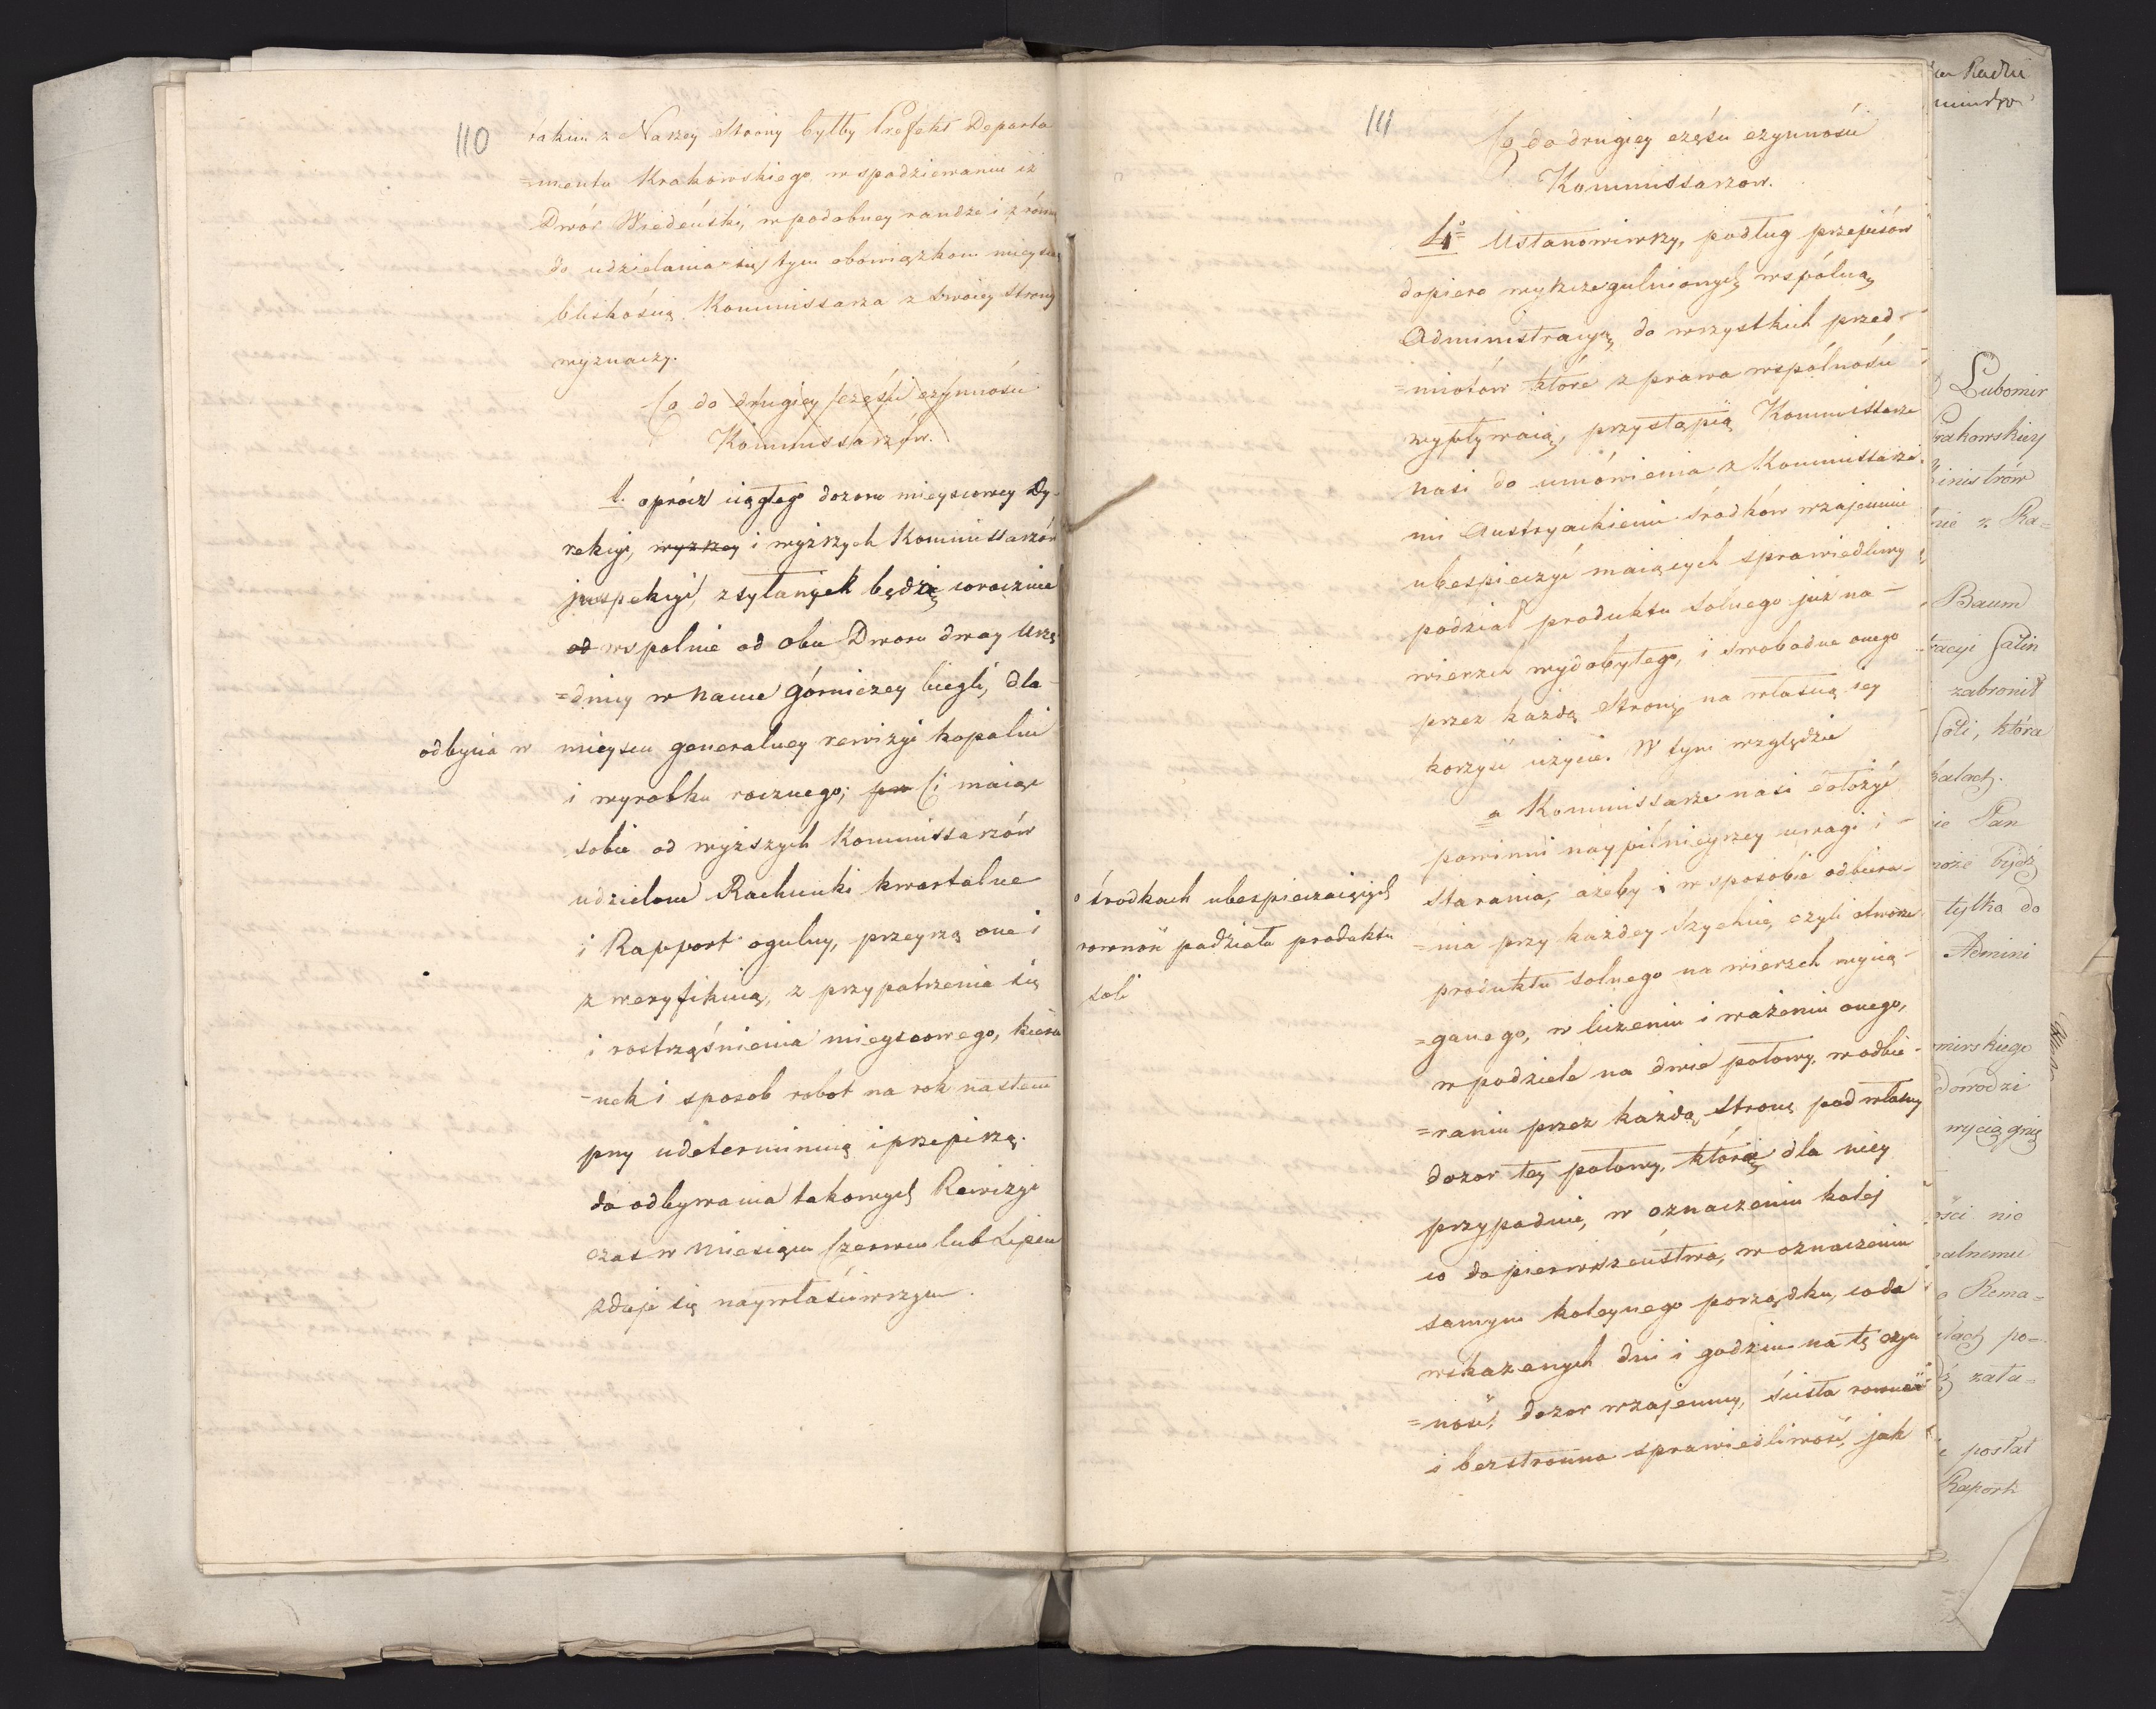 110
takim z Naszey Strony byłby Prefekt Departa
=mentu Krakowskiego w spodziewaniu iż
Dwór Wiedeński, w podobney randze i z równą
do udzielania się tym obowiązkom mieysca
bliskością Kommissarza z swoiey strony
wyznaczy.
Co do drugiey części czynności
Kommissarzow.
l. oprócz ciągłego dozoru mieyscowey Dy-
rekcyi, wyzszey i wyższych Kommissarzów
inspekcyi, zsyłanych będzie corocznie
od wspolnie od obu Dworu dway Urzę
=dnicy w nauce górniczey biegli, dla
odbycia w mieyscu generalney rewizyi kopalni
i wyrobku rocznego; Ci maiąc
sobie od wyższych Kommissarzów
udzielone Rachunki kwartalne
i Rapport ogulny, przeyrzą one i
zweryfikuią, z przypatrzenia się
i rostrząśnienia mieyscowego, kieru
=nek i sposob robot na rok nastem
pny udeterminuią i przepiszą.
do odbywania takowych Rewizyi
czas w Miesiącu Czerwcu lub Lipcu
zdaje się naywłaściwszym.
111
Co do drugiey części czynności
Kommissarzow.
4º Ustanowiwszy, podług przepisów
dopiero wyszczegulnionych wspólną
Administracyą do wszystkich przed-
=miotów które z prawa wspólności
wypływaią, przystąpią Kommissarze
nasi do umówienia z Kommissarza
mi Austryackiemi środków wzajemnie
ubespieczyć maiących sprawiedliwy
podział produktu solnego już na-
wierzch wydobytego, i swobodne onego
przez każdą Stronę na własną iey
korzyść użycie. W tym względzie
a Kommissarze nasi dołożyć
powinni naypilnieyszey uwagi i
starania, ażeby i w sposobie odbiera-
=nia przy każdey Szychcie, czyli otworze
produktu solnego na wierzch wycią-
=ganego, w liczeniu i ważeniu onego,
w podziele na dwie połowy, w odbie-
=raniu przez każdą stronę pod własny
dozor tey połowy, która dla niey
przypadnie, w oznaczeniu kolej
co do pierwszeństwa, w oznaczeniu
samym koleynego porządku, co do
wskazanych dni i godzin na tę czyn
=ność, dozor wzajemny, ścisła rowność
i bezstronna sprawiedliwość, jak
o środkach ubespieczaiących
rowność podziału produktu
soli
Lubomir
Krakowskiey
inistrów
nie z Ra=
Baum
racyi Salin
zabronił
Soli, która
Pan
może bydź
tylko do
Admini
mirskiego
dowodzi
wyciągnię
ości nie
Rema=
po=
zała=
posłał
Raport